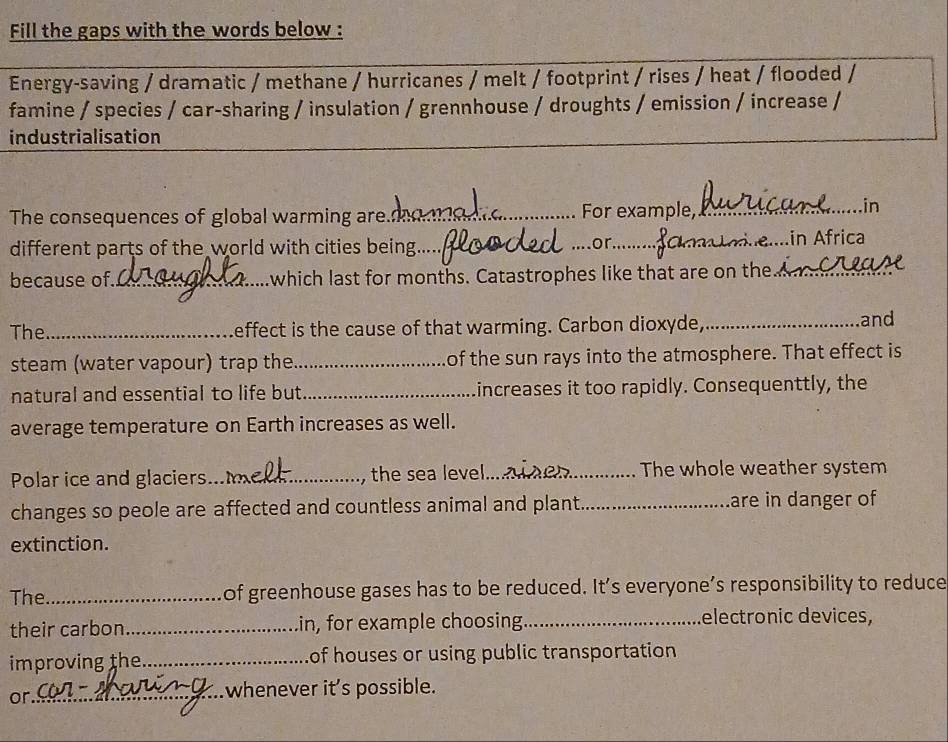 Fill the gaps with the words below :
Energy-saving / dramatic / methane / hurricanes / melt / footprint / rises / heat / flooded /
famine / species / car-sharing / insulation / grennhouse / droughts / emission / increase /
industrialisation
The consequences of global warming are.dramatic.............. For example, huricane......in
different parts of the world with cities being.....flooded ....or.........famine....in Africa
because of.droughts.....which last for months. Catastrophes like that are on the increase
The...............................effect is the cause of that warming. Carbon dioxyde,.............................and
steam (water vapour) trap the............................of the sun rays into the atmosphere. That effect is
natural and essential to life but................................increases it too rapidly. Consequenttly, the
average temperature on Earth increases as well.
Polar ice and glaciers...melt............., the sea level...rises............ The whole weather system
changes so peole are affected and countless animal and plant............................are in danger of
extinction.
The...............................of greenhouse gases has to be reduced. It's everyone's responsibility to reduce
their carbon...............................in, for example choosing.................................electronic devices,
improving the..............................of houses or using public transportation
or.car-sharing...whenever it's possible.